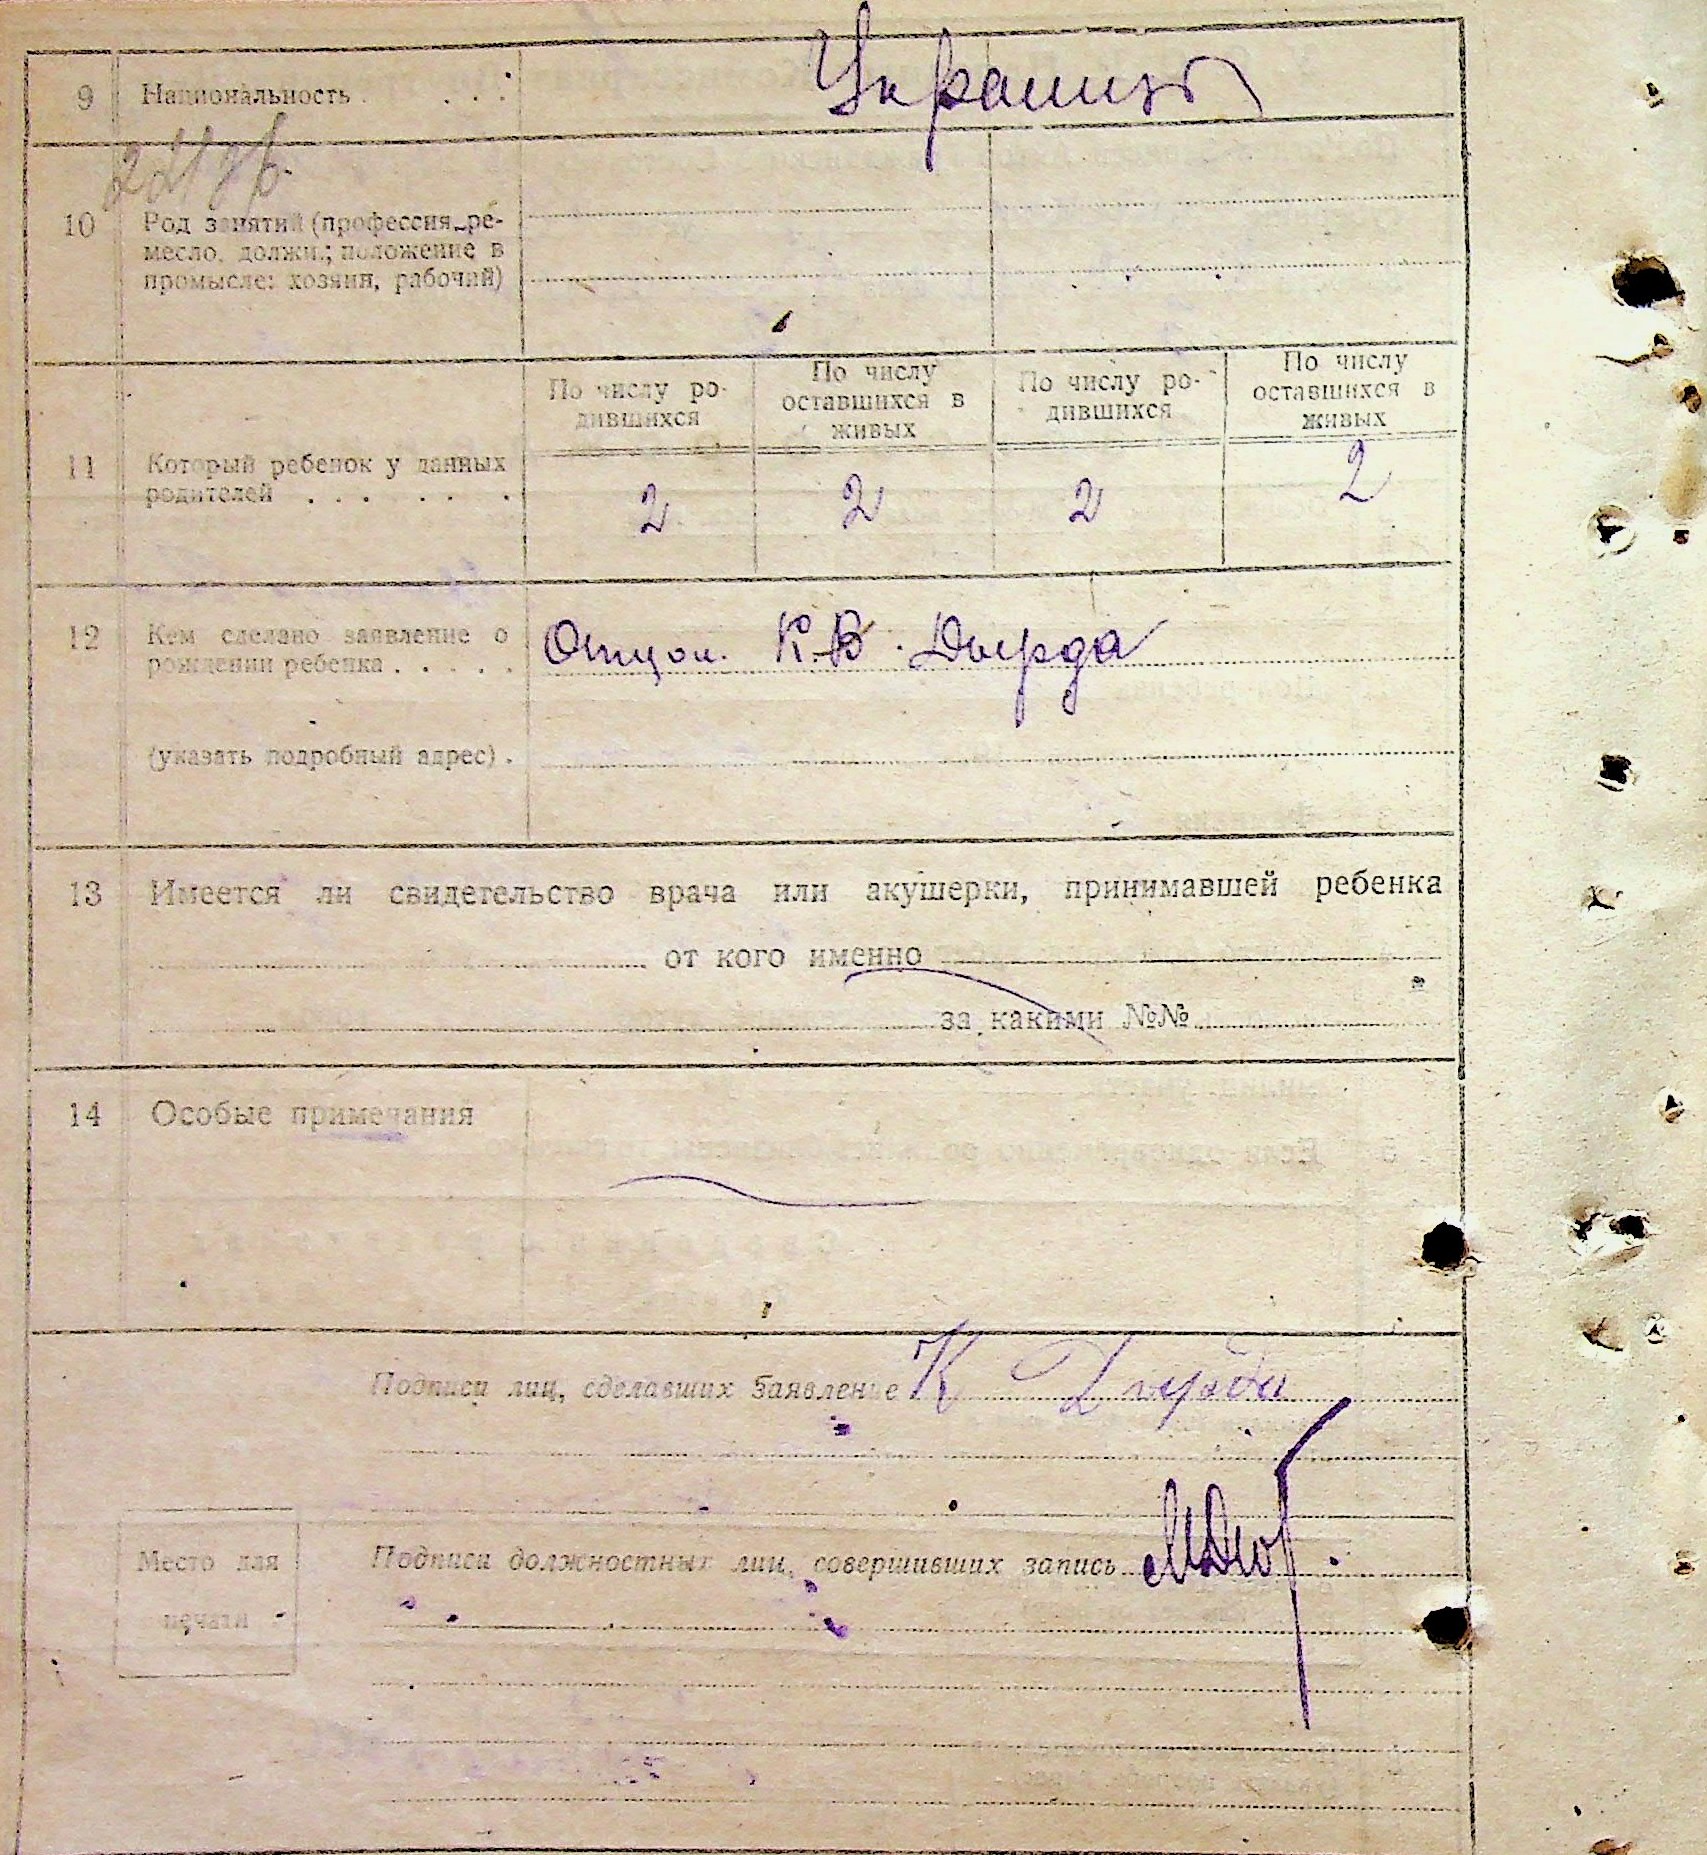 9 Национальность . . . . Украинцы
10 Род занятий (профессия, ре-
месло, должн.; положение в
промысле: хозяин, рабочий)
По числу ро-
дившихся
По числу
оставшихся в
живых
По числу ро-
дившихся
По числу
оставшихся в
живых
11 Который ребенок у данных
родителей . . . . . .
2 2 2 2
12 Кем сделано заявление о
рождении ребенка . . . . .
Отцом. К.В. Дырда
(указать подробный адрес) .
13 Имеется ли свидетельство врача или акушерки, принимавшей ребенка
от кого именно
за какими №№
14 Особые примечания
Подписи лиц, сделавших заявление К Дырда
Место для
печати
Подписи должностных лиц, совершивших запись